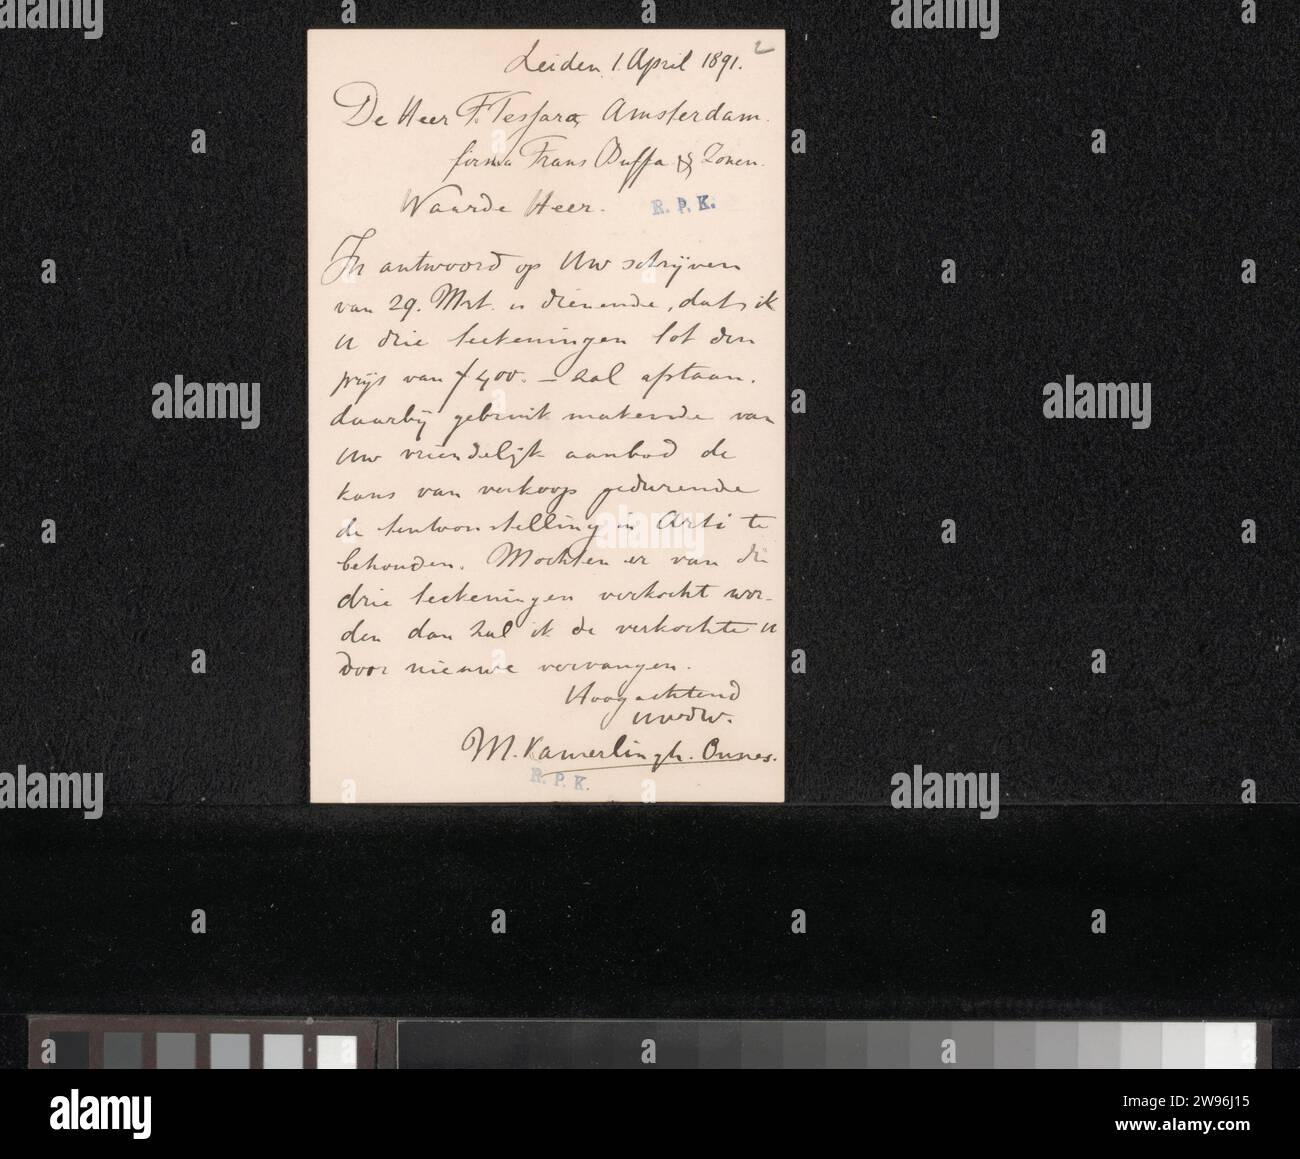 Leiden 1. April 1891. 2
De Heer F. Tessaro, Amsterdam.
firma Frans Buffa & Zonen.
Waarde Heer.
R. P. K.
In antwoord op Uw schrijven
van 29. Mrt. is dienende, dat ik
u drie teekeningen tot den
prijs van f 400. – zal afstaan.
daarbij gebruik makende van
Uw vriendelijk aanbod de
kans van verkoop gedurende
de tentoonstelling in Arti te
behouden. Mochten er van die
drie teekeningen verkocht wor-
den dan zal ik de verkochte u
door nieuwe vervangen.
Hoogachtend
Uwdw.
M. Kamerlingh. Onnes.
R. P. K.
alamy
Image ID: 2W96J15
www.alamy.com